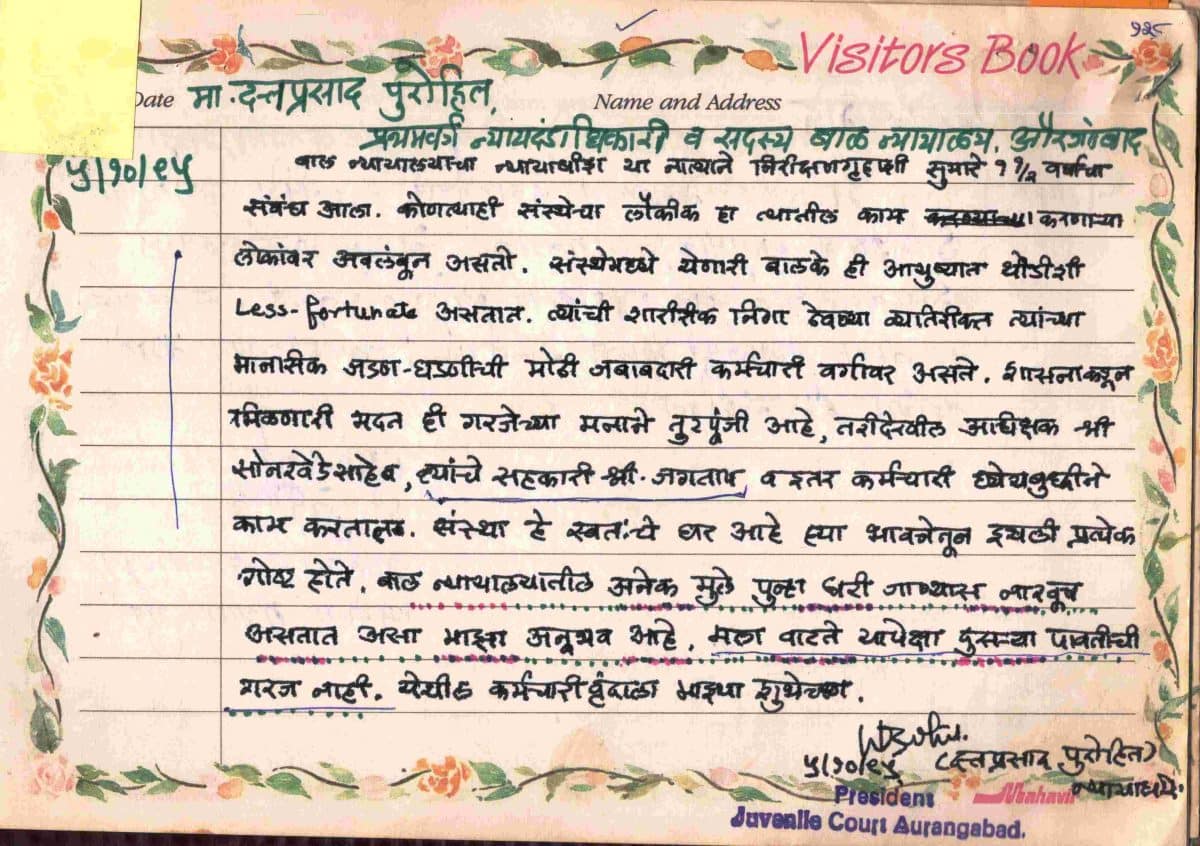 १२८
Visitors Book
Date मा. दत्तप्रसाद पुरोहित, Name and Address
प्रथमवर्ग न्यायदंडाधिकारी व सदस्य बाळ न्यायालय, औरंगाबाद
५/१०/९५ बाल न्यायालयाचा न्यायाधीश या नात्याने निरीक्षणगृहाशी सुमारे १ १/२ वर्षाचा
संबंध आला. कोणत्याही संस्थेचा लौकीक हा त्यातील काम करणाऱ्या
लोकांवर अवलंबून असतो. संस्थेमध्ये येणारी बालके ही आयुष्यात थोडीशी
Less-fortunate असतात. त्यांची शारीरीक निगा ठेवण्या व्यतिरीक्त त्यांच्या
मानसिक जडण-घडणीची मोठी जबाबदारी कर्मचारी वर्गावर असते. शासनाकडून
मिळणारी मदत ही गरजेच्या मनाने तुटपूंजी आहे, तरीदेखील अधिक्षक श्री
सोनरवेडेसाहेब, त्यांचे सहकारी श्री. जगताप व इतर कर्मचारी ध्येयबुध्दीने
काम करतात. संस्था हे स्वतःचे घर आहे ह्या भावनेतून इथली प्रत्येक
गोष्ट होते. बाल न्यायालयातील अनेक मुले पुन्हा घरी जाण्यास नाखूष
असतात असा माझा अनूभव आहे. मला वाटते यापेक्षा दुसऱ्या पावतीची
गरज नाही. येथील कर्मचारीवृंदाला माझ्या शुभेच्छा.
५/१०/९५ (दत्तप्रसाद पुरोहित)
न्यायाधीश.
President Mahavir
Juvenile Court Aurangabad.